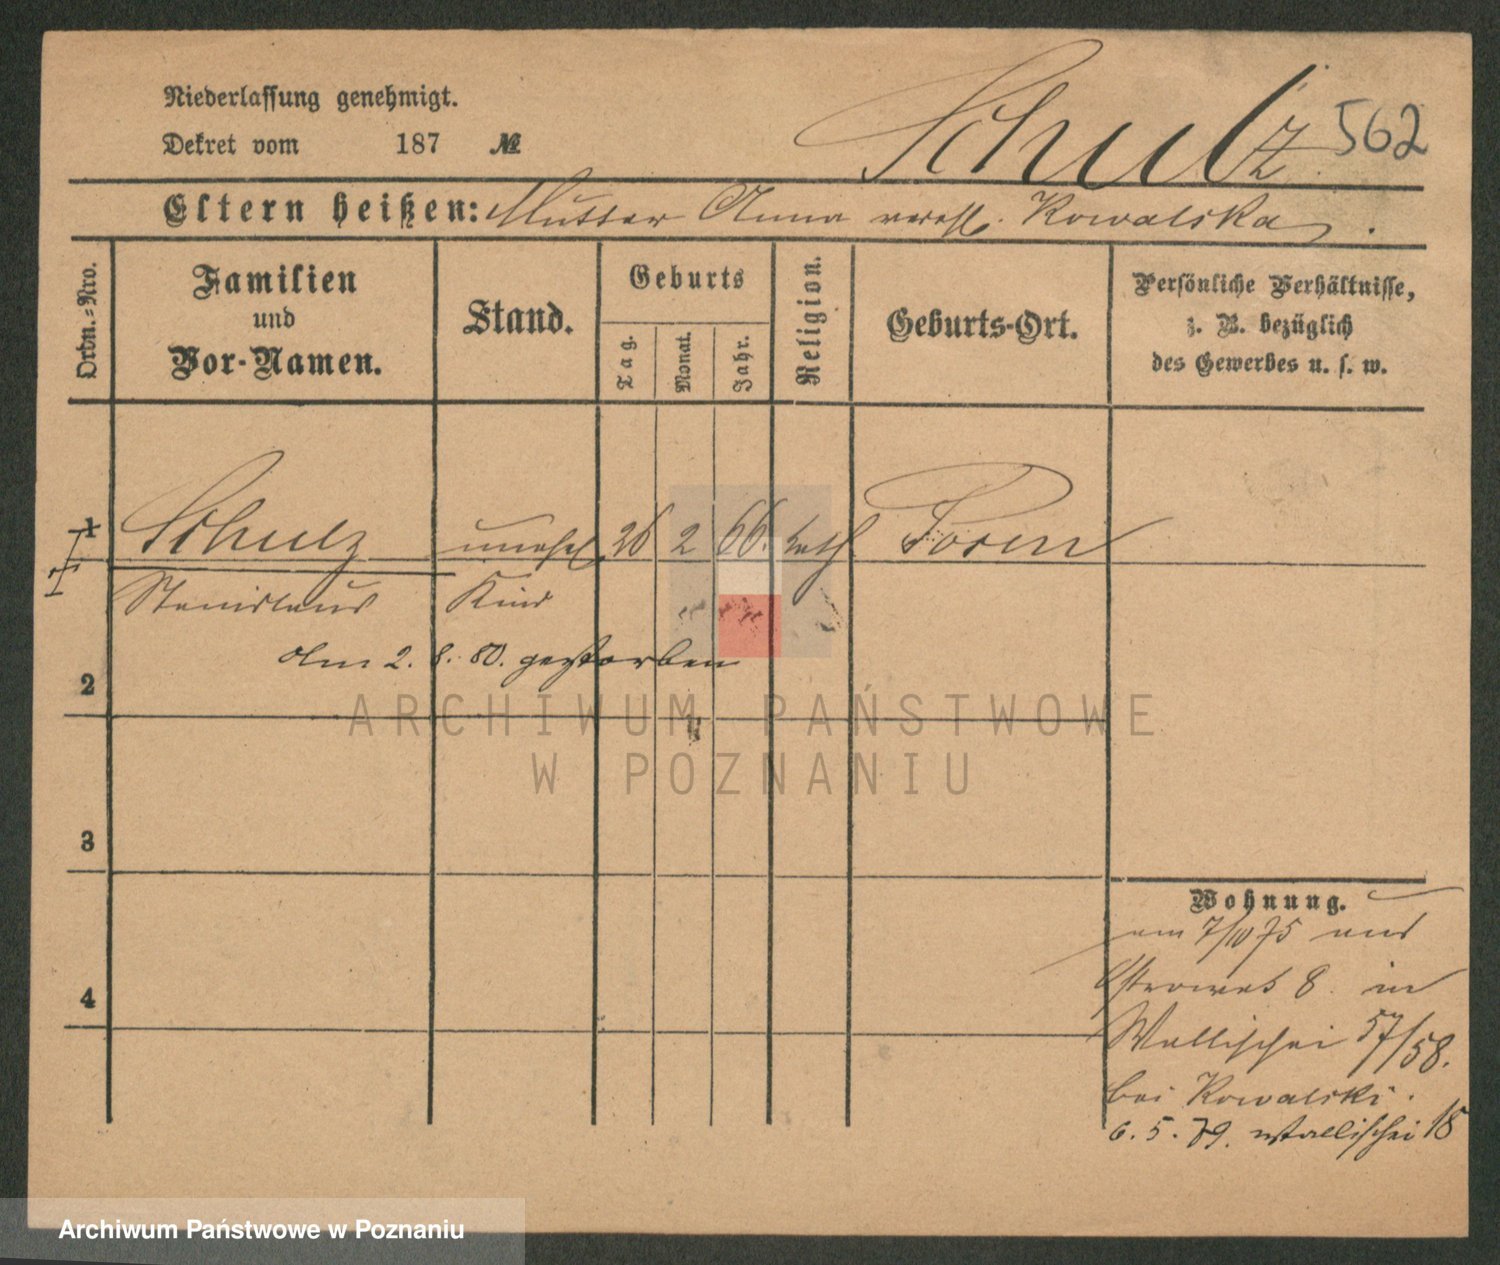 Niederlassung genehmigt.
Dekret vom 187 №
Schulz 562
Eltern heißen: Mutter Anna verehl. Kowalska.
Ordn.-Nro.
Familien und Vor-Namen.
Stand.
Geburts
Tag.
Monat.
Jahr.
Religion.
Geburts-Ort.
Persönliche Verhältnisse,
z. B. bezüglich
des Gewerbes u. s. w.
1 Schulz unehel 26 2 66. kath Posen
Stanislaus Kind
am 2. 8. 80. gestorben
2
ARCHIWUM PAŃSTWOWE
W POZNANIU
3
Wohnung.
am 7/10 75 aus
Ostrowek 8. in
4
Wallischei 57/58.
bei Kowalski.
6. 5. 79. Wallischei 18
Archiwum Państwowe w Poznaniu